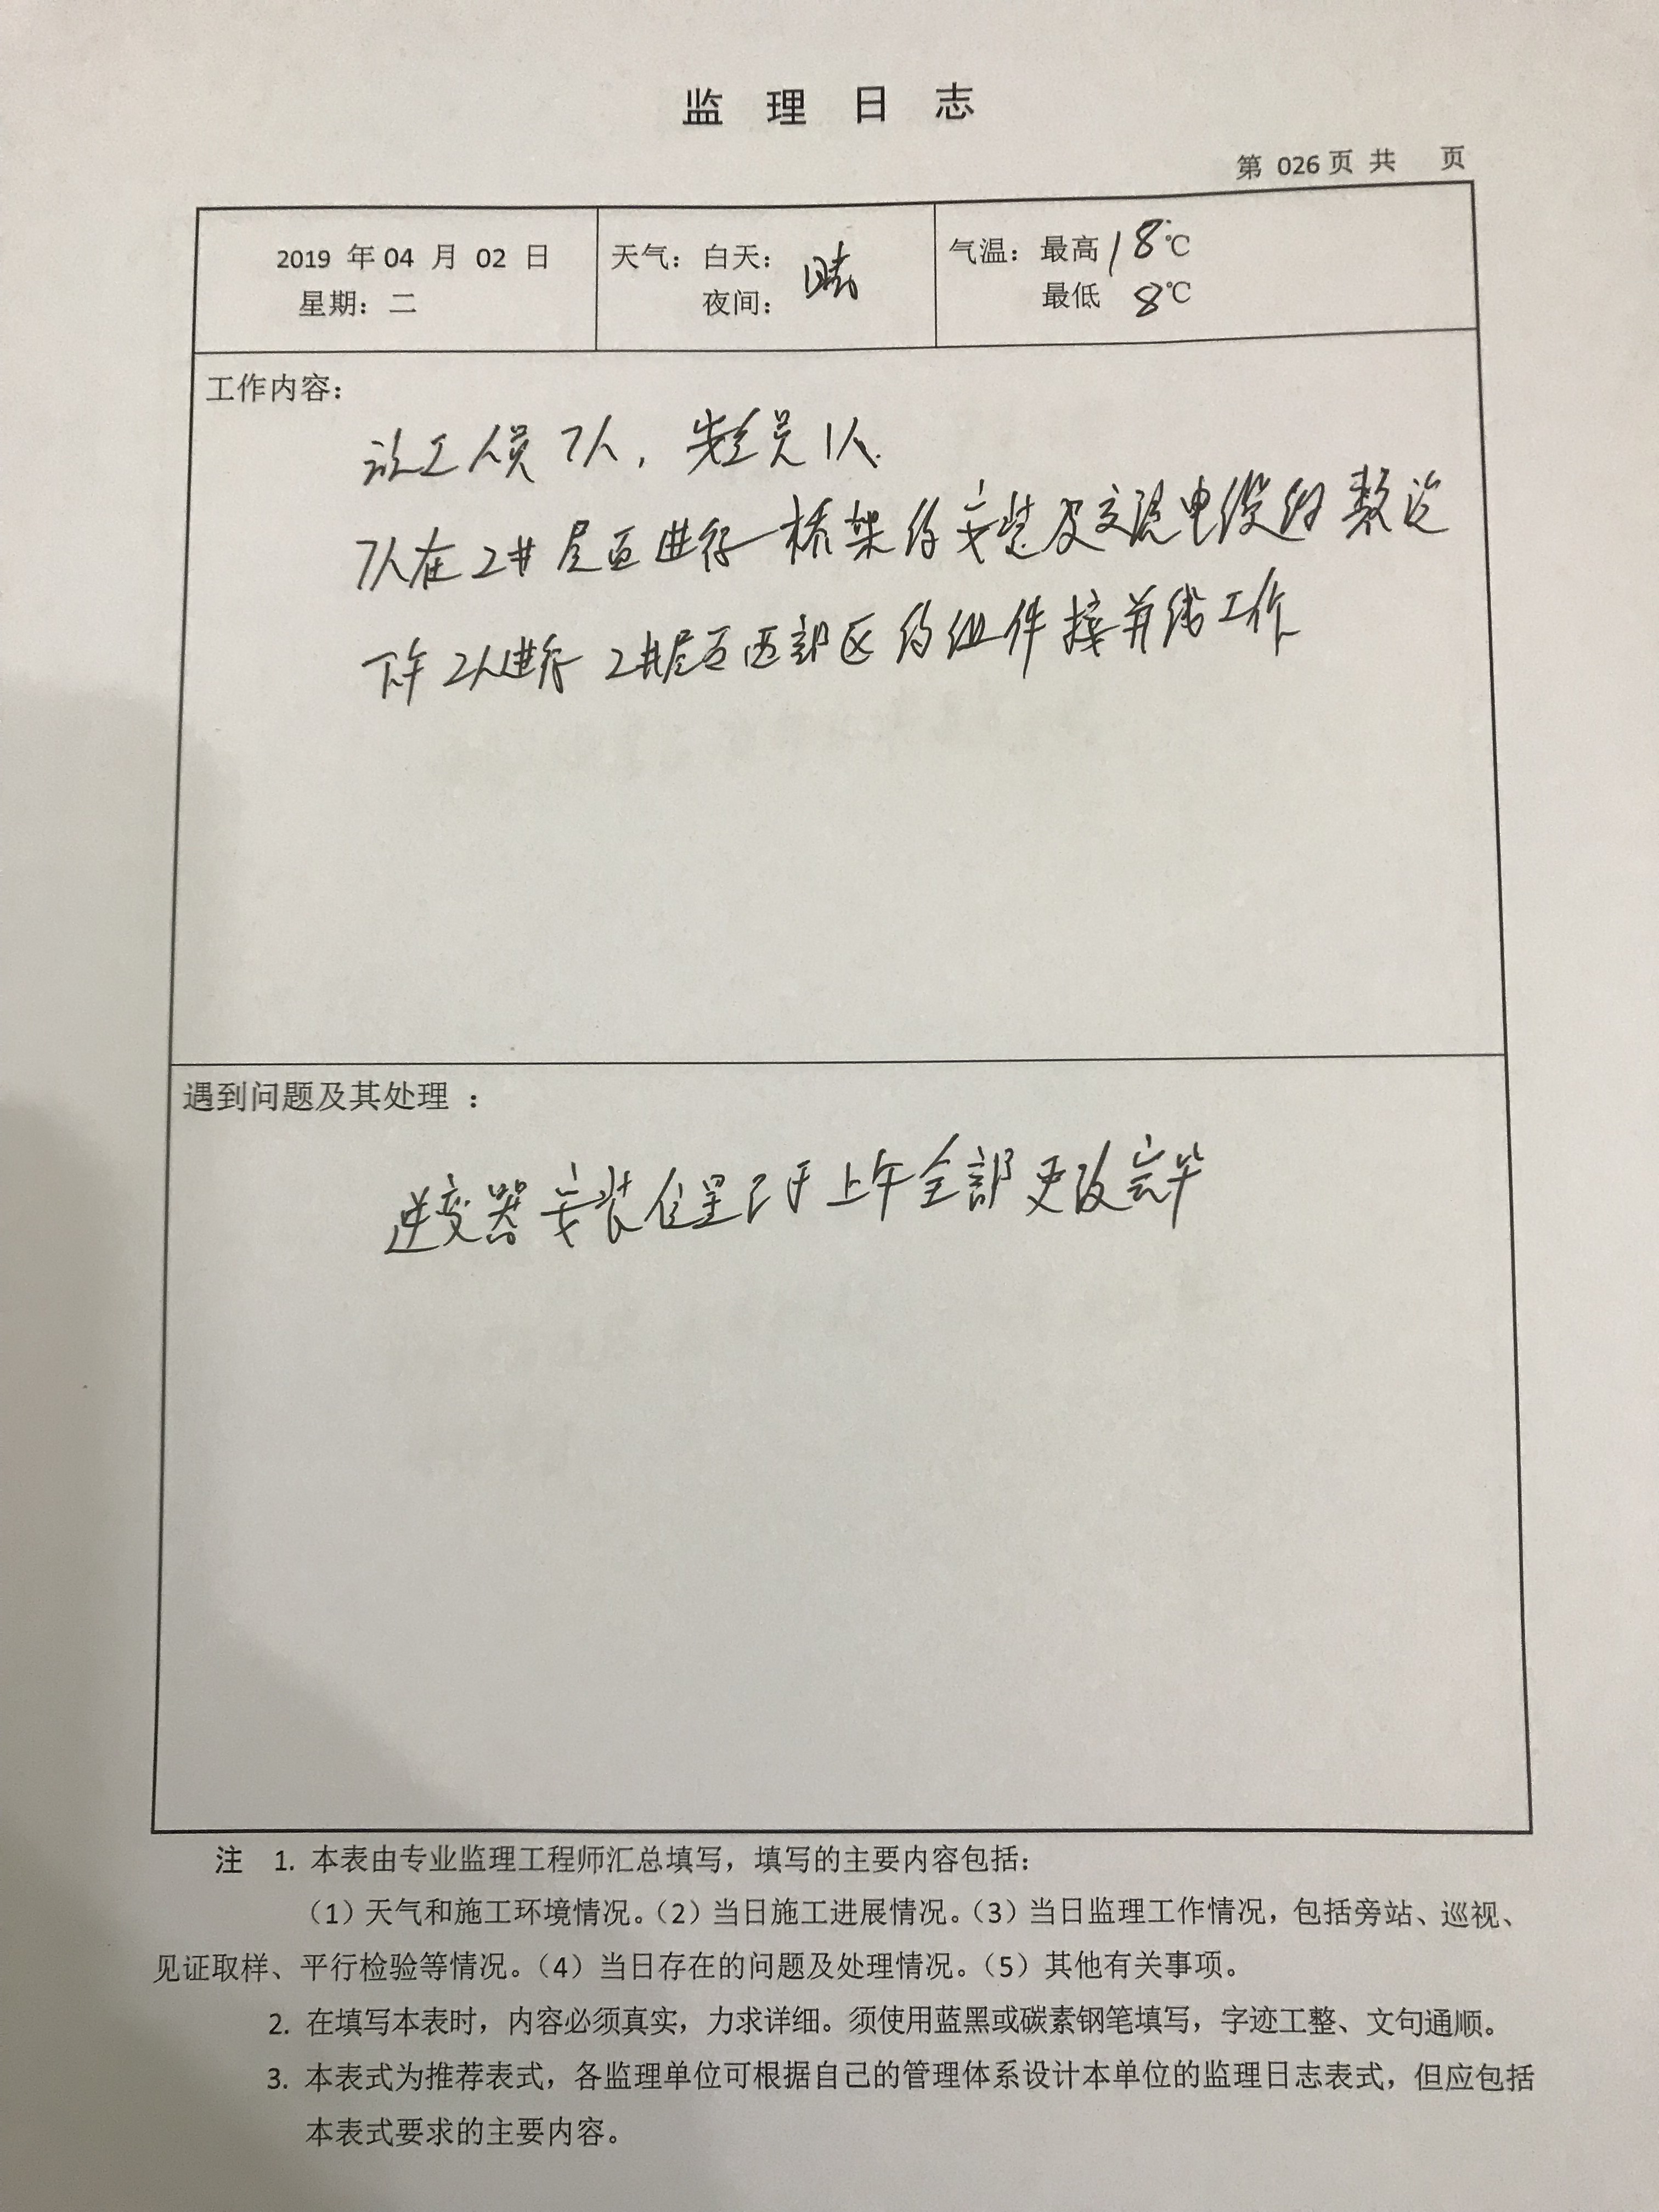 监 理 日 志
第 026 页 共 页
2019 年 04 月 02 日
星期：二
天气：白天：
夜间：
晴
气温：最高 18℃
最低 8℃
工作内容：
施工人员 7人，安全员 1人.
7人在2#屋面进行桥架的安装及交流电缆的敷设
下午2人进行2#屋面西部区的组件接并线工作
遇到问题及其处理 ：
逆变器安装位置已于上午全部更改完毕
注 1. 本表由专业监理工程师汇总填写，填写的主要内容包括：
（1）天气和施工环境情况。（2）当日施工进展情况。（3）当日监理工作情况，包括旁站、巡视、
见证取样、平行检验等情况。（4）当日存在的问题及处理情况。（5）其他有关事项。
2. 在填写本表时，内容必须真实，力求详细。须使用蓝黑或碳素钢笔填写，字迹工整、文句通顺。
3. 本表式为推荐表式，各监理单位可根据自己的管理体系设计本单位的监理日志表式，但应包括
本表式要求的主要内容。